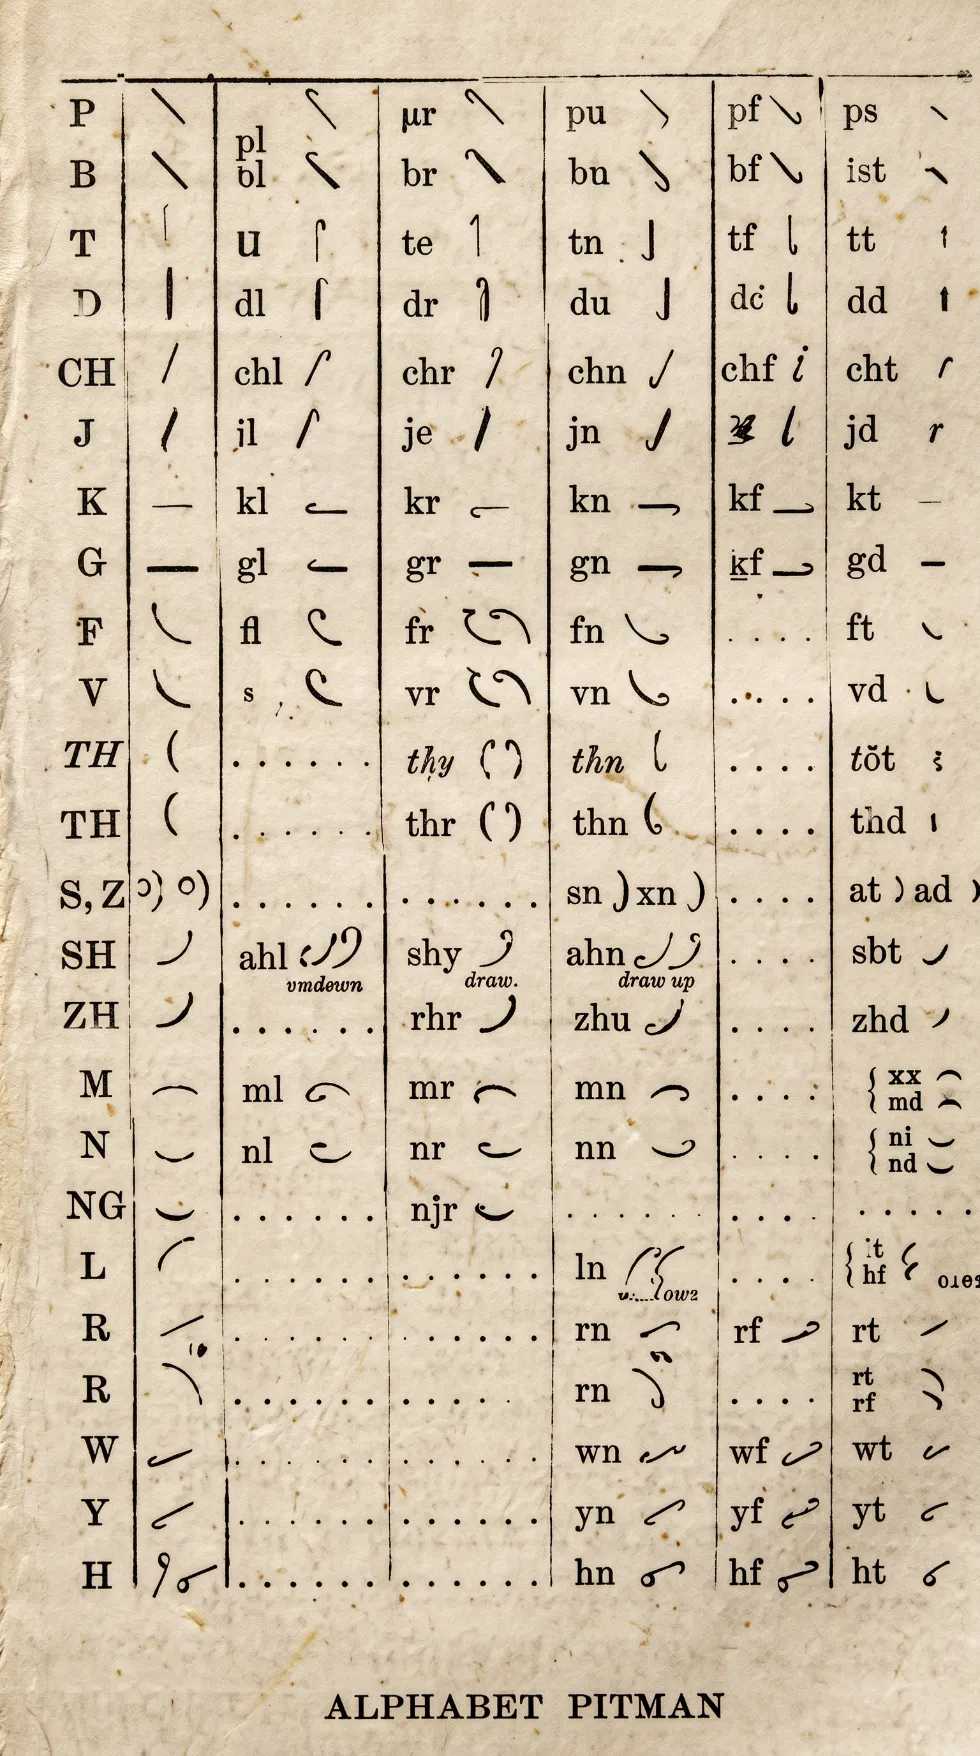 P pl µr pu pf ps
B bl br bn bf ist
T U te tn tf tt
D dl dr du dc dd
CH chl chr chn chf cht
J jl je jn jd
K kl kr kn kf kt
G gl gr gn kf gd
F fl fr fn . . . . ft
V s vr vn . . . . vd
TH . . . . . . thy thn . . . . tŏt
TH . . . . . . thr thn . . . . thd
S, Z . . . . . . . . . . . . sn xn . . . . at ad
SH ahl shy ahn . . . . sbt
vmdewn draw. draw up
ZH . . . . . . rhr zhu . . . . zhd
M ml mr mn . . . . xx
md
N nl nr nn . . . . ni
nd
NG . . . . . . njr . . . . . . . . . . . . . . .
L . . . . . . . . . . . . ln . . . . it
hf
R . . . . . . . . . . . . rn rf rt
R . . . . . . . . . . . rn . . . . rt
rf
W . . . . . . . . . . . . wn wf wt
Y . . . . . . . . . . . . yn yf yt
H . . . . . . . . . . . . hn hf ht
ALPHABET PITMAN